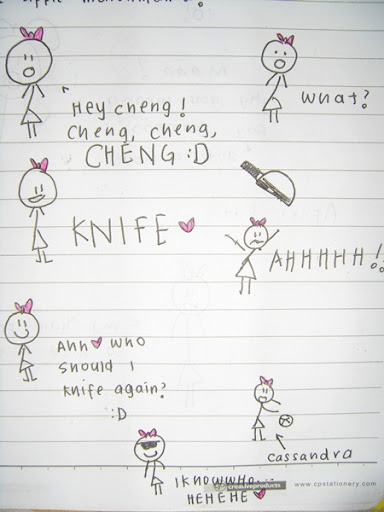 Hey cheng!
cheng, cheng,
CHENG :D
what?
KNIFE
AHHHHH!!
Ahh who
should I
knife again?
:D
cassandra
I KNOW WHO...
HEHEHE
creativeproducts
www.cpstationery.com